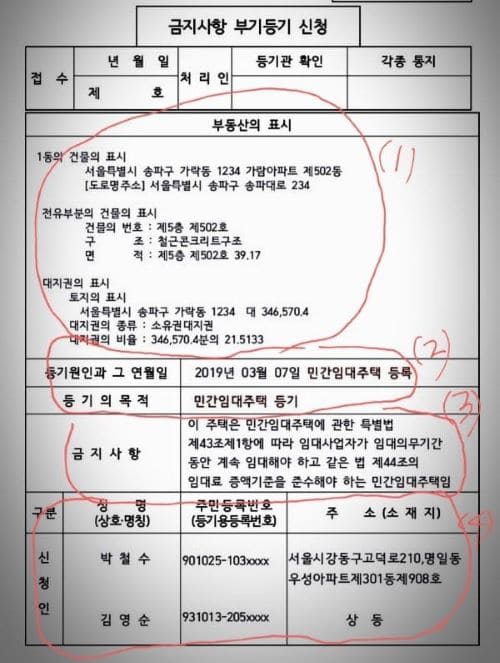 금지사항 부기등기 신청
접 수
년 월 일
제 호
처 리 인
등기관 확인
각종 통지
부동산의 표시
1동의 건물의 표시
서울특별시 송파구 가락동 1234 가람아파트 제502동
[도로명주소] 서울특별시 송파구 송파대로 234
전유부분의 건물의 표시
건물의 번호 : 제5층 제502호
구 조 : 철근콘크리트구조
면 적 : 제5층 제502호 39.17
대지권의 표시
토지의 표시
서울특별시 송파구 가락동 1234 대 346,570.4
대지권의 종류 : 소유권대지권
대지권의 비율 : 346,570.4분의 21.5133
(1)
등기원인과 그 연월일
2019년 03월 07일 민간임대주택 등록
(2)
등 기 의 목 적
민간임대주택 등기
(3)
금 지 사 항
이 주택은 민간임대주택에 관한 특별법
제43조제1항에 따라 임대사업자가 임대의무기간
동안 계속 임대해야 하고 같은 법 제44조의
임대료 증액기준을 준수해야 하는 민간임대주택임
구분
성 명
(상호·명칭)
주민등록번호
(등기용등록번호)
주 소 (소 재 지)
(4)
신 청 인
박 철 수
901025-103xxxx
서울시강동구고덕로210,명일동
우성아파트제301동제908호
김 영 순
931013-205xxxx
상 동